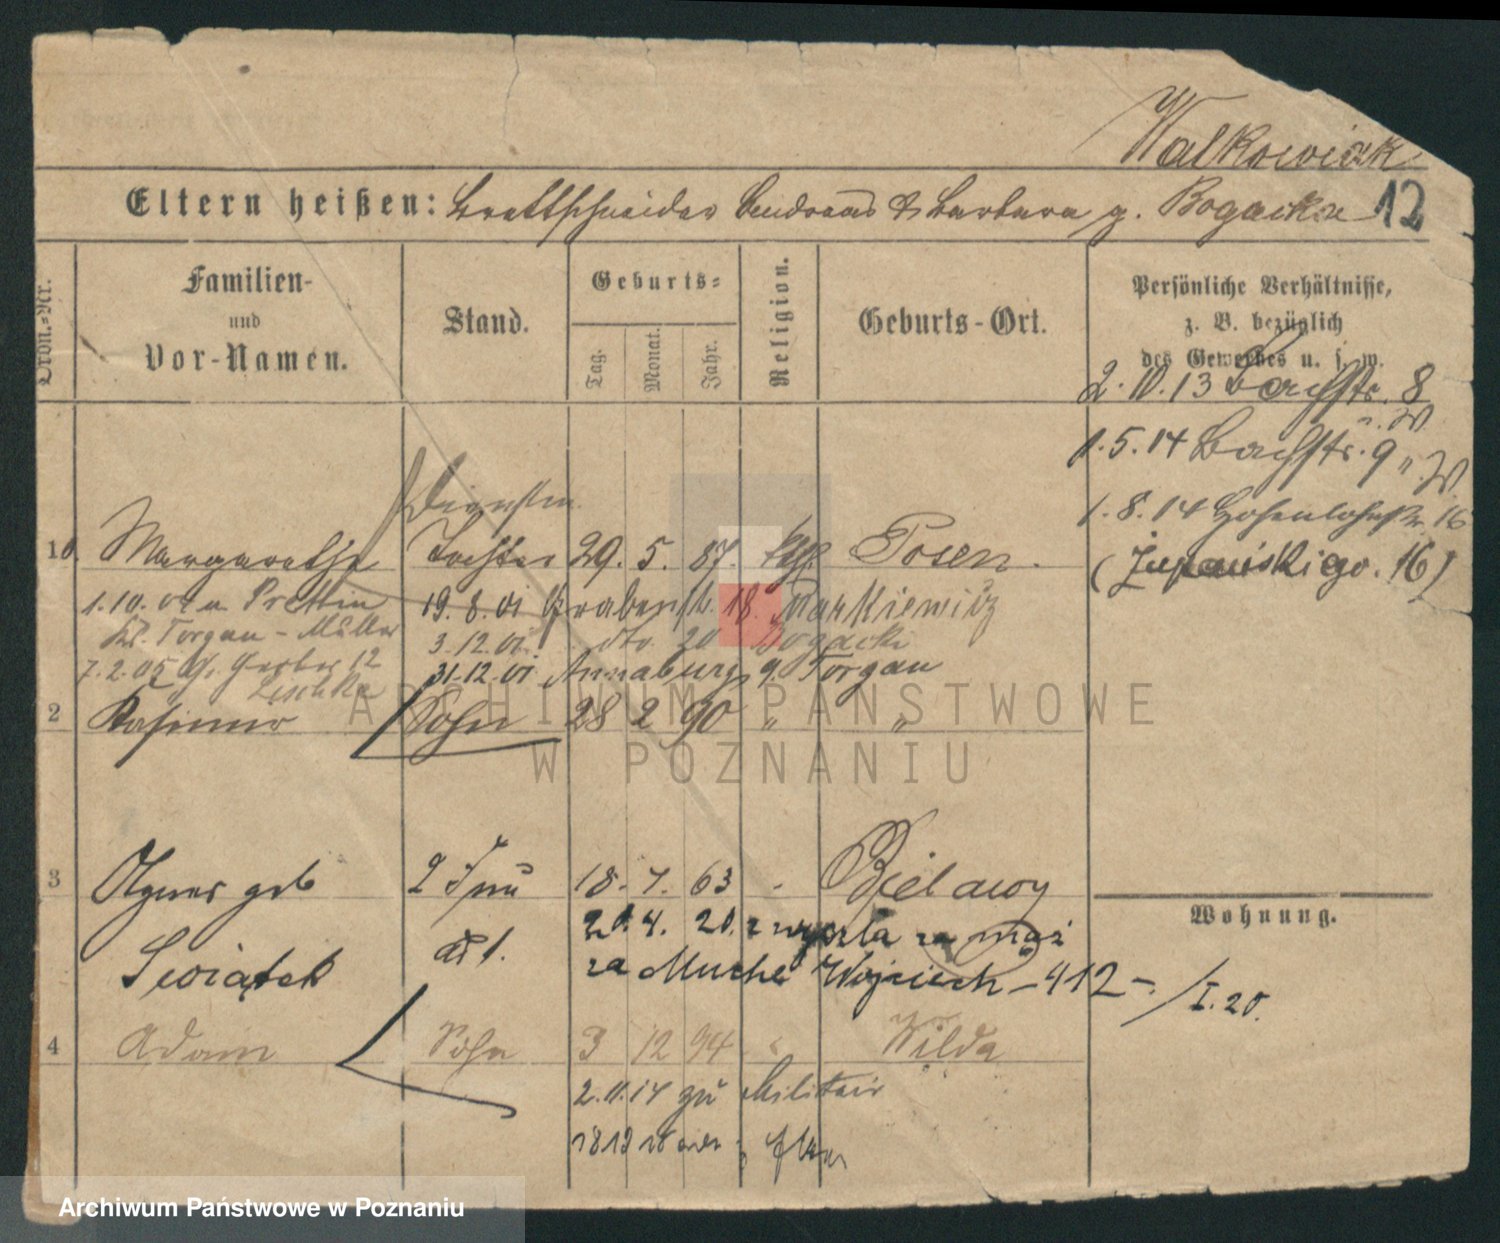 Walkowiak
Eltern heißen: Brettschneider Andreas & Barbara g. Bogacka 12
Ordn.-Nr.
Familien- und Vor-Namen.
Stand.
Geburts-
Tag. Monat. Jahr.
Religion.
Geburts-Ort.
Persönliche Verhältnisse,
z. B. bezüglich
des Gewerbes u. s. w.
2.10.13 Bachstr. 8
1.5.14 Bachstr. 9
1.8.14 Hohenlohestr. 16
(Żupańskiego. 16)
Dienstm.
1 Margarethe Tochter 29. 5. 87. kth. Posen.
1.10. 01 n Prettin 19.8.01 Grabenstr. 18. Markiewicz
Kr. Torgau - Müller 3.12.01. dto. 20 Bogacki
7.2.05 Gr. Gerber 12 31.12.01 Annaburg g. Torgau
2 Kasimir Sohn 28 2 90 " "
3 Agnes geb 2 Frau 18. 7. 63 - Bielawy
Swiątek 20. 4. 20. wyszła za mąż
za Wojciech - 412 - /I.20.
Wohnung.
4 Adam Sohn 3 12 94 " Wilda
2.11.14 zu Militair